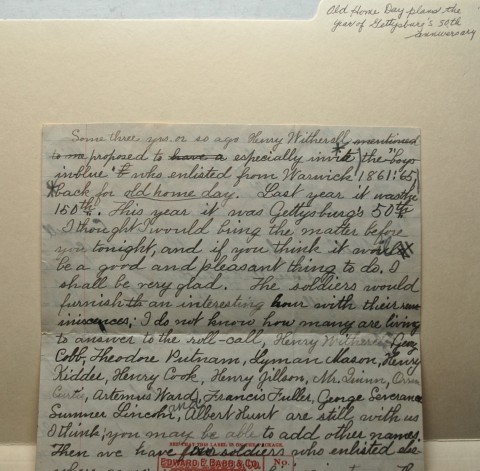 Old Home Day plans the
year of Gettysburg's 50th
anniversary
Some three yrs. or so ago Henry Witherell mentioned
to me proposed to have a especially invite the "boys
in blue" who enlisted from Warwick 1861-'65,
back for old home day. Last year it was
150th. This year it was Gettysburg's 50th.
I thought I would bring the matter before
you tonight, and if you think it would
be a good and pleasant thing to do, I
shall be very glad. The soldiers would
furnish an interesting hour with their rem-
iniscences; I do not know how many are living
to answer to the roll-call, Henry Witherell Geo.
Cobb, Theodore Putnam, Lyman Mason, Henry
Kidder, Henry Cook, Henry Jillson, Mr. Quinn, Orrin
Curtis, Artemus Ward, Francis Fuller, George Severance
Sumner Lincoln, Albert Hunt are still with us
I think; you may be able to add other names.
Then we have four soldiers who enlisted else
EDWARD E. BABB & CO. No.